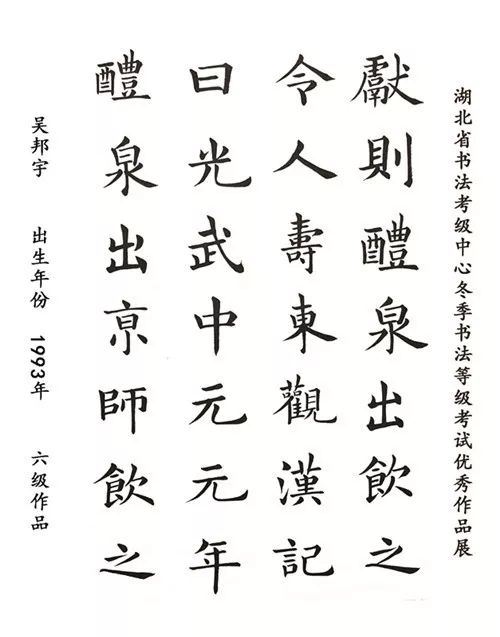 湖北省书法考级中心冬季书法等级考试优秀作品展
獻則醴泉出飲之
令人壽東觀漢記
曰光武中元元年
醴泉出京師飲之
吴邦宇 出生年份 1993年 六级作品